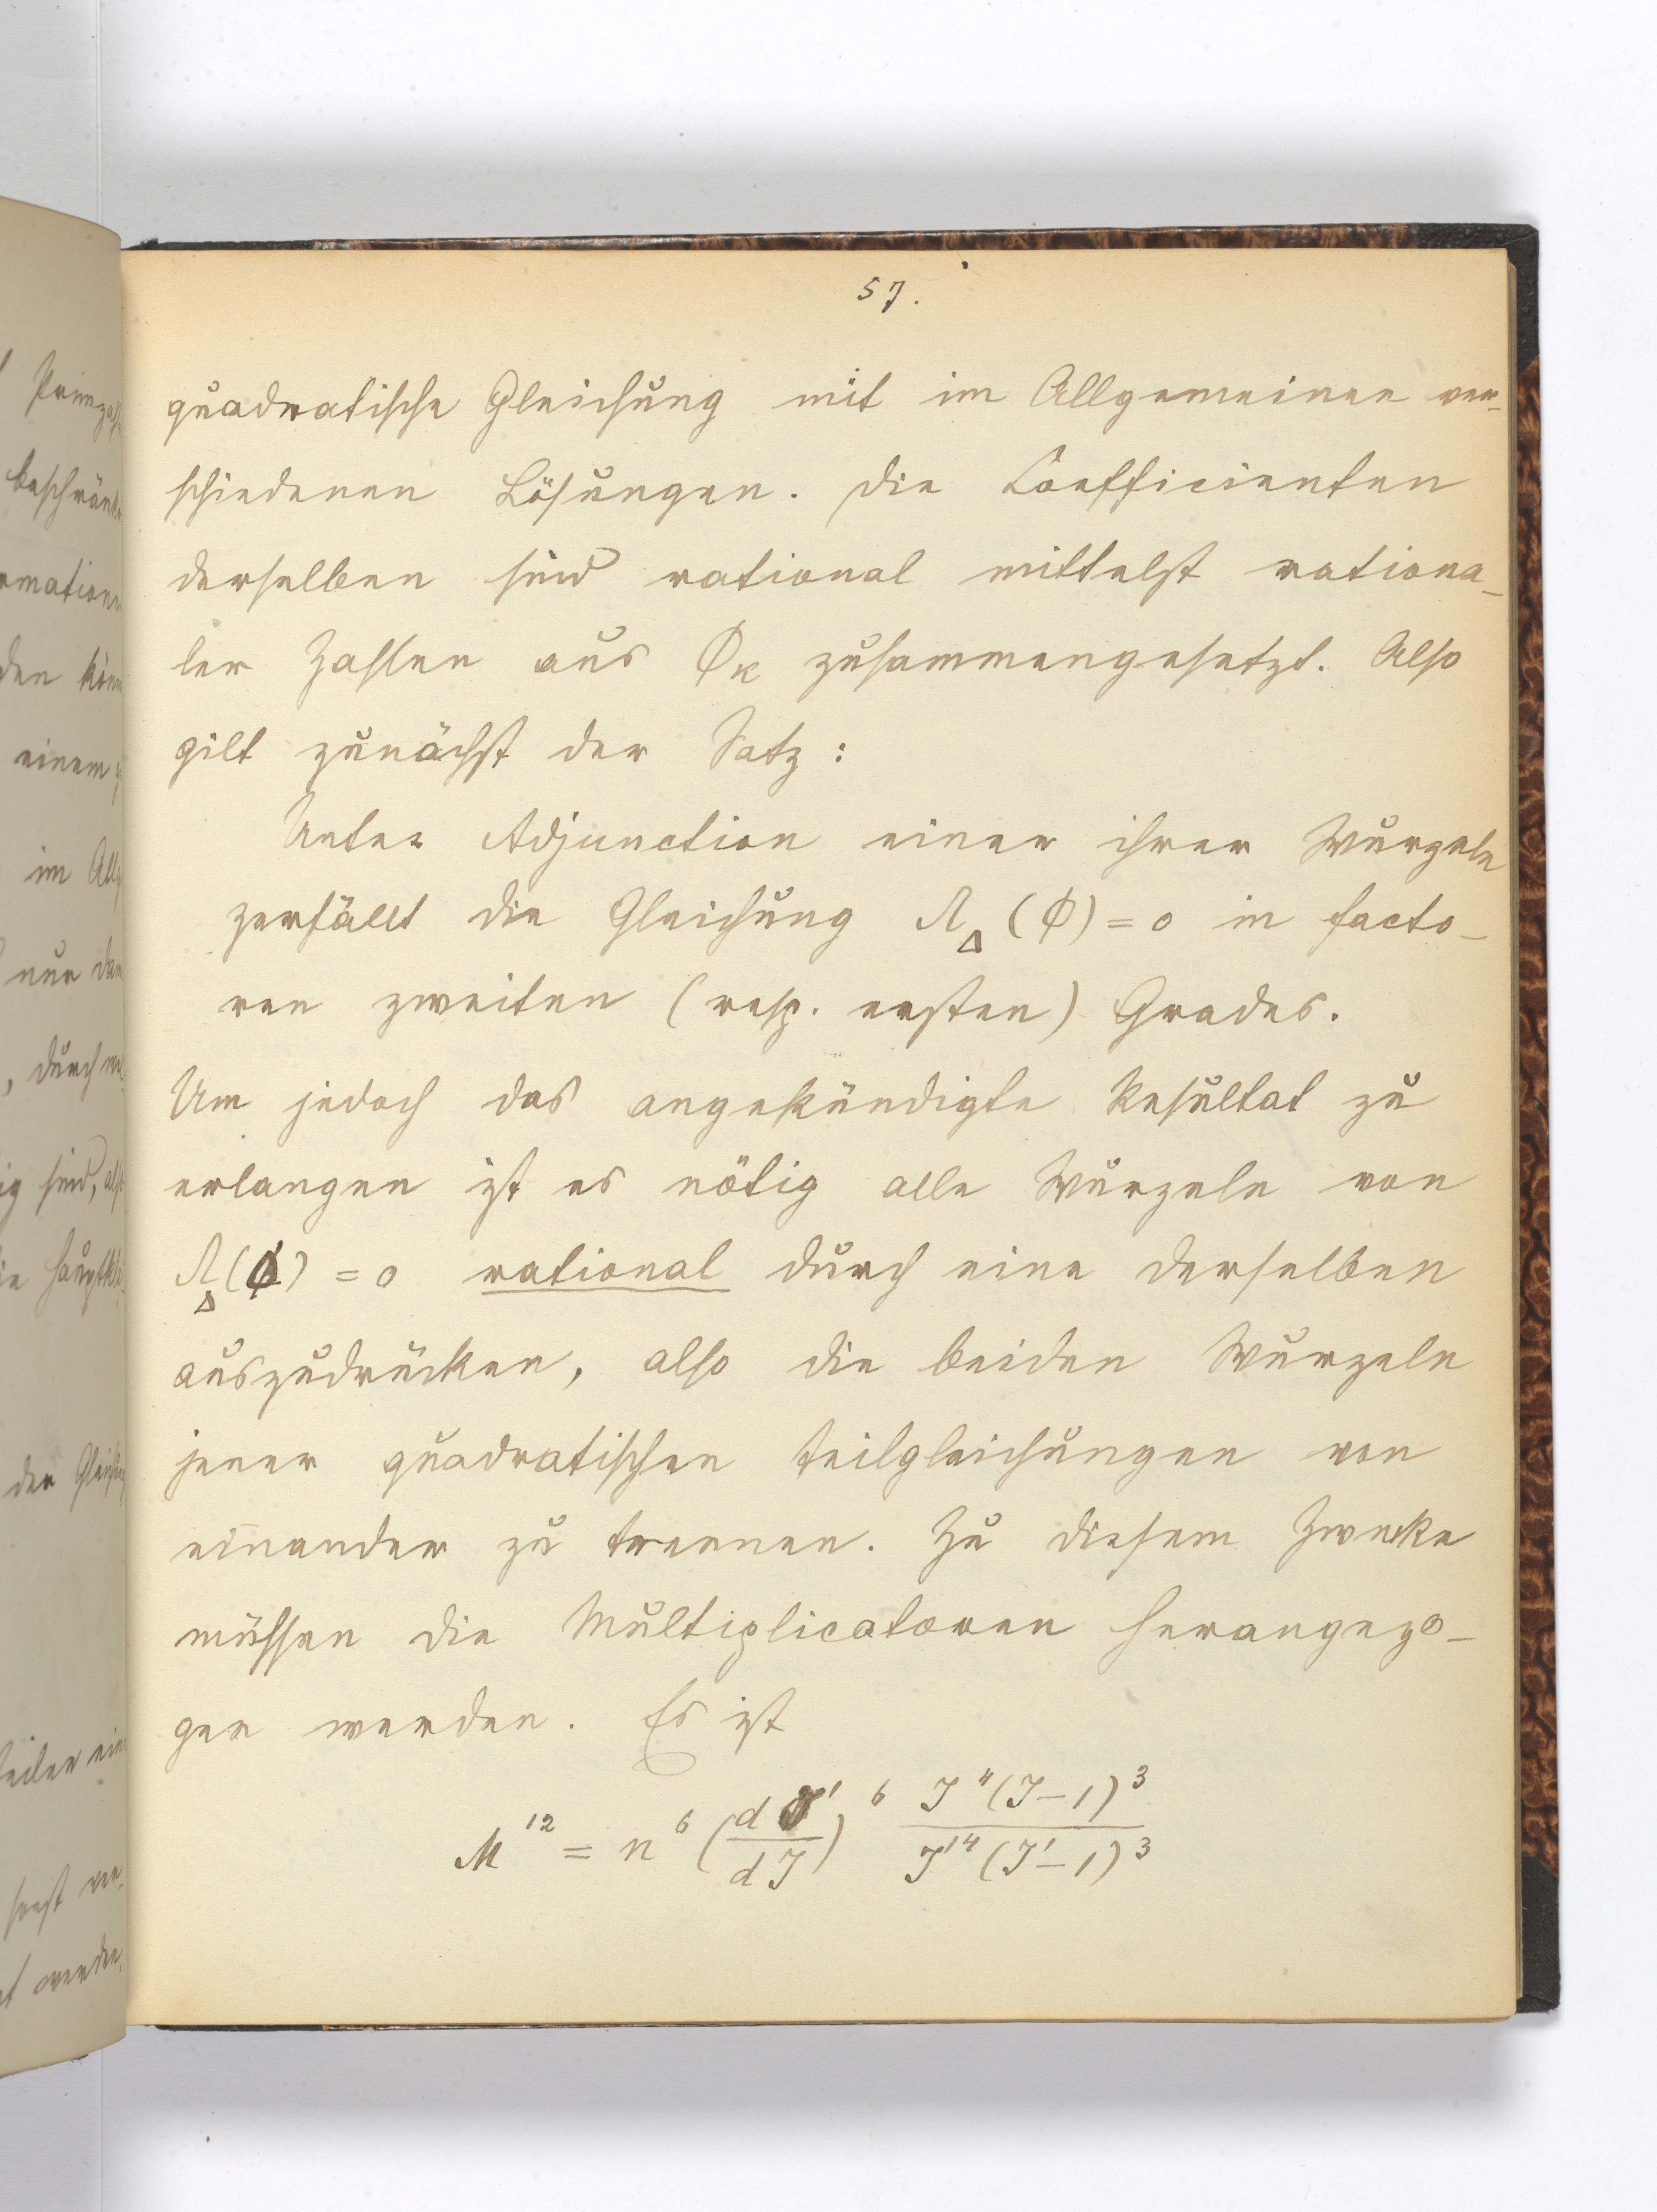 57.
quadratische Gleichung mit im Allgemeinen ver-
schiedenen Lösungen. Die Coefficienten
derselben sind rational mittelst rationa-
ler Zahlen aus Φ_k zusammengesetzt. Also
gilt zunächst der Satz:
Unter Adjunction einer ihrer Wurzeln
zerfällt die Gleichung Λ_Δ (Φ) = 0 in facto-
ren zweiten (resp. ersten) Grades.
Um jedoch das angekündigte Resultat zu
erlangen ist es nötig alle Wurzeln von
Λ_Δ (Φ) = 0 rational durch eine derselben
auszudrücken, also die beiden Wurzeln
jener quadratischen Teilgleichungen von
einander zu trennen. Zu diesem Zwecke
müssen die Multiplicatoren herangezo-
gen werden. Es ist
M^12 = n^6 (dJ'/dJ)^6 J^4(J-1)^3 / J'^4(J'-1)^3